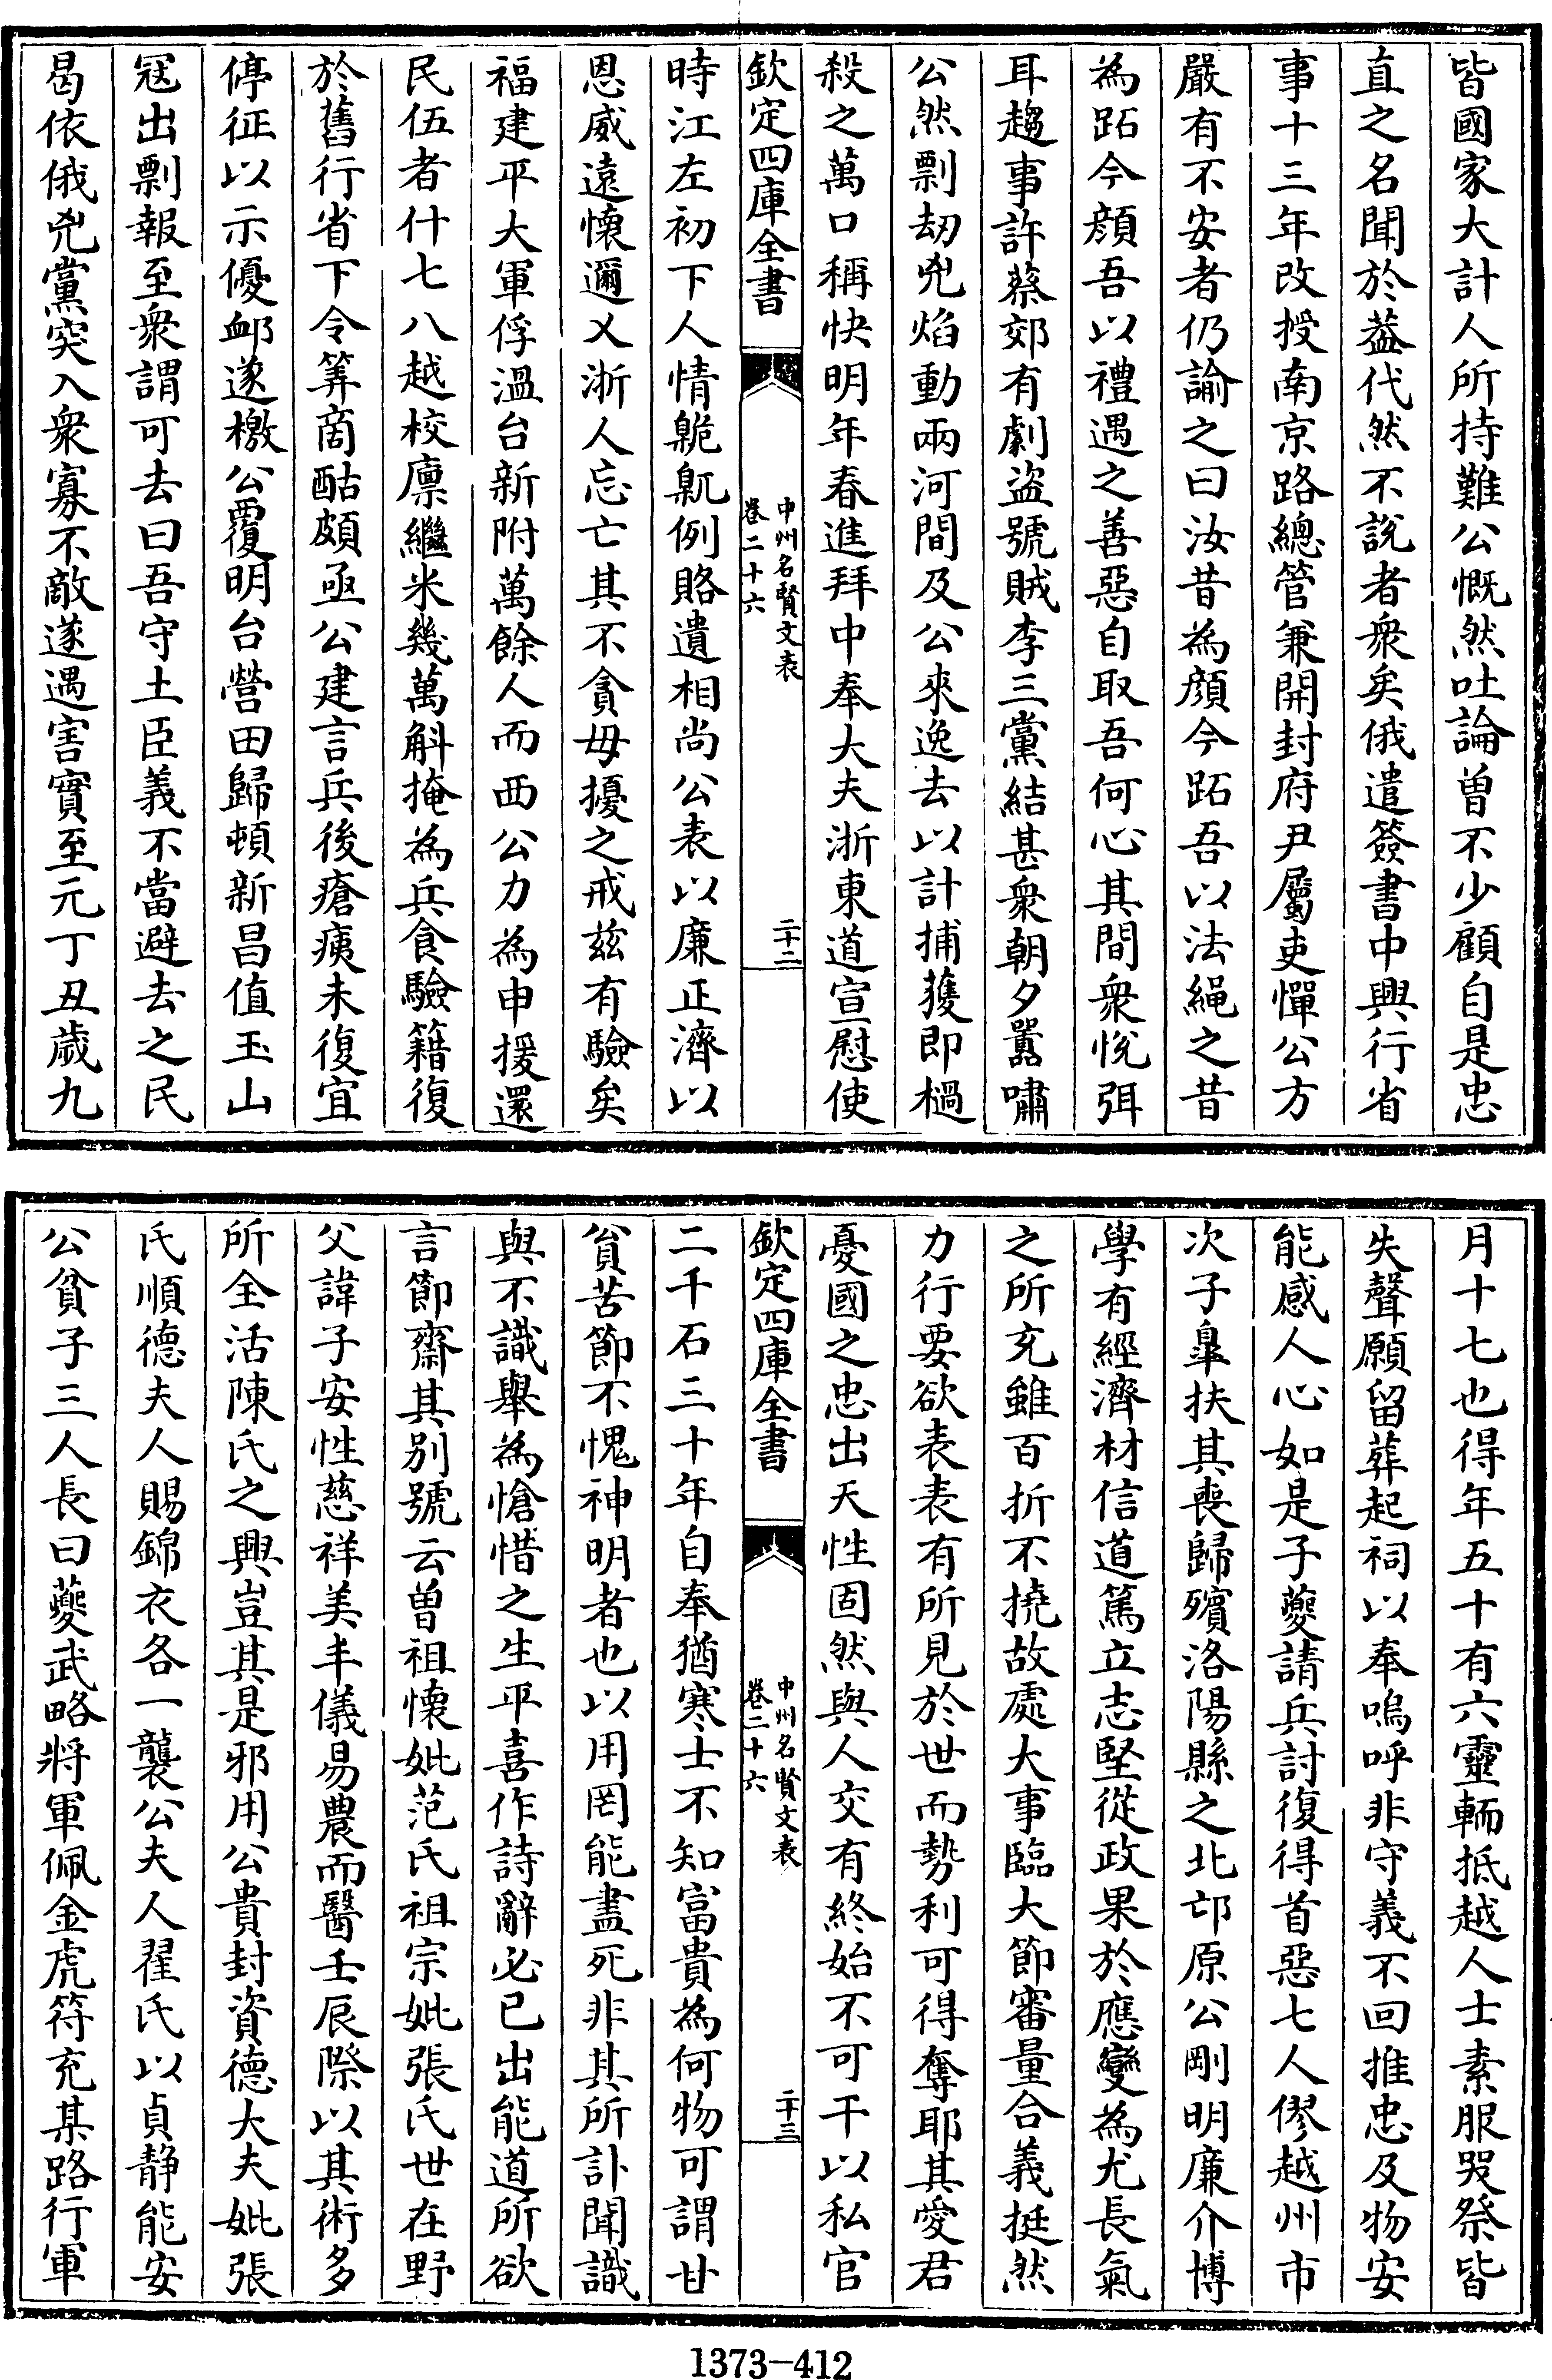 皆國家大計人所持難公慨然吐論曾不少顧自是忠
直之名聞於葢代然不說者衆矣俄遣簽書中興行省
事十三年改授南京路總管兼開封府尹屬吏憚公方
嚴有不安者仍諭之曰汝昔為顔今跖吾以法繩之昔
為跖今顔吾以禮遇之善惡自取吾何心其間衆悅弭
耳趨事許蔡郊有劇盜號賊李三黨結甚衆朝夕嚻嘯
公然剽刼兇焰動兩河間及公來逸去以計捕獲即檛
殺之萬口稱快明年春進拜中奉大夫浙東道宣慰使
欽定四庫全書
中州名賢文表
卷二十六
二十二
時江左初下人情臲卼例賂遺相尚公表以廉正濟以
恩威遠懷邇乂浙人忘亡其不貪毋擾之戒兹有驗矣
福建平大軍俘溫台新附萬餘人而西公力為申援還
民伍者什七八越校廪繼米幾萬斛掩為兵食驗籍復
於舊行省下令筭啇酤頗亟公建言兵後瘡痍未復宜
停征以示優䘏遂檄公覆明台營田歸頓新昌值玉山
冦出剽報至衆謂可去曰吾守土臣義不當避去之民
曷依俄兇黨突入衆寡不敵遂遇害實至元丁丑歲九
月十七也得年五十有六靈輀抵越人士素服哭祭皆
失聲願留葬起祠以奉嗚呼非守義不回推忠及物安
能感人心如是子夔請兵討復得首惡七人僇越州市
次子臯扶其喪歸殯洛陽縣之北邙原公剛明廉介博
學有經濟材信道篤立志堅從政果於應變為尤長氣
之所充雖百折不撓故處大事臨大節審量合義挺然
力行要欲表表有所見於世而勢利可得奪耶其愛君
憂國之忠出天性固然與人交有終始不可干以私官
欽定四庫全書
中州名賢文表
卷二十六
二十三
二千石三十年自奉猶寒士不知富貴為何物可謂甘
貧苦節不愧神明者也以用罔能盡死非其所訃聞識
與不識舉為愴惜之生平喜作詩辭必已出能道所欲
言節齋其别號云曾祖懷妣范氏祖宗妣張氏世在野
父諱子安性慈祥美丰儀易農而醫壬辰際以其術多
所全活陳氏之興豈其是邪用公貴封資德大夫妣張
氏順德夫人賜錦衣各一襲公夫人翟氏以貞静能安
公貧子三人長曰夔武略將軍佩金虎符充某路行軍
1373-412